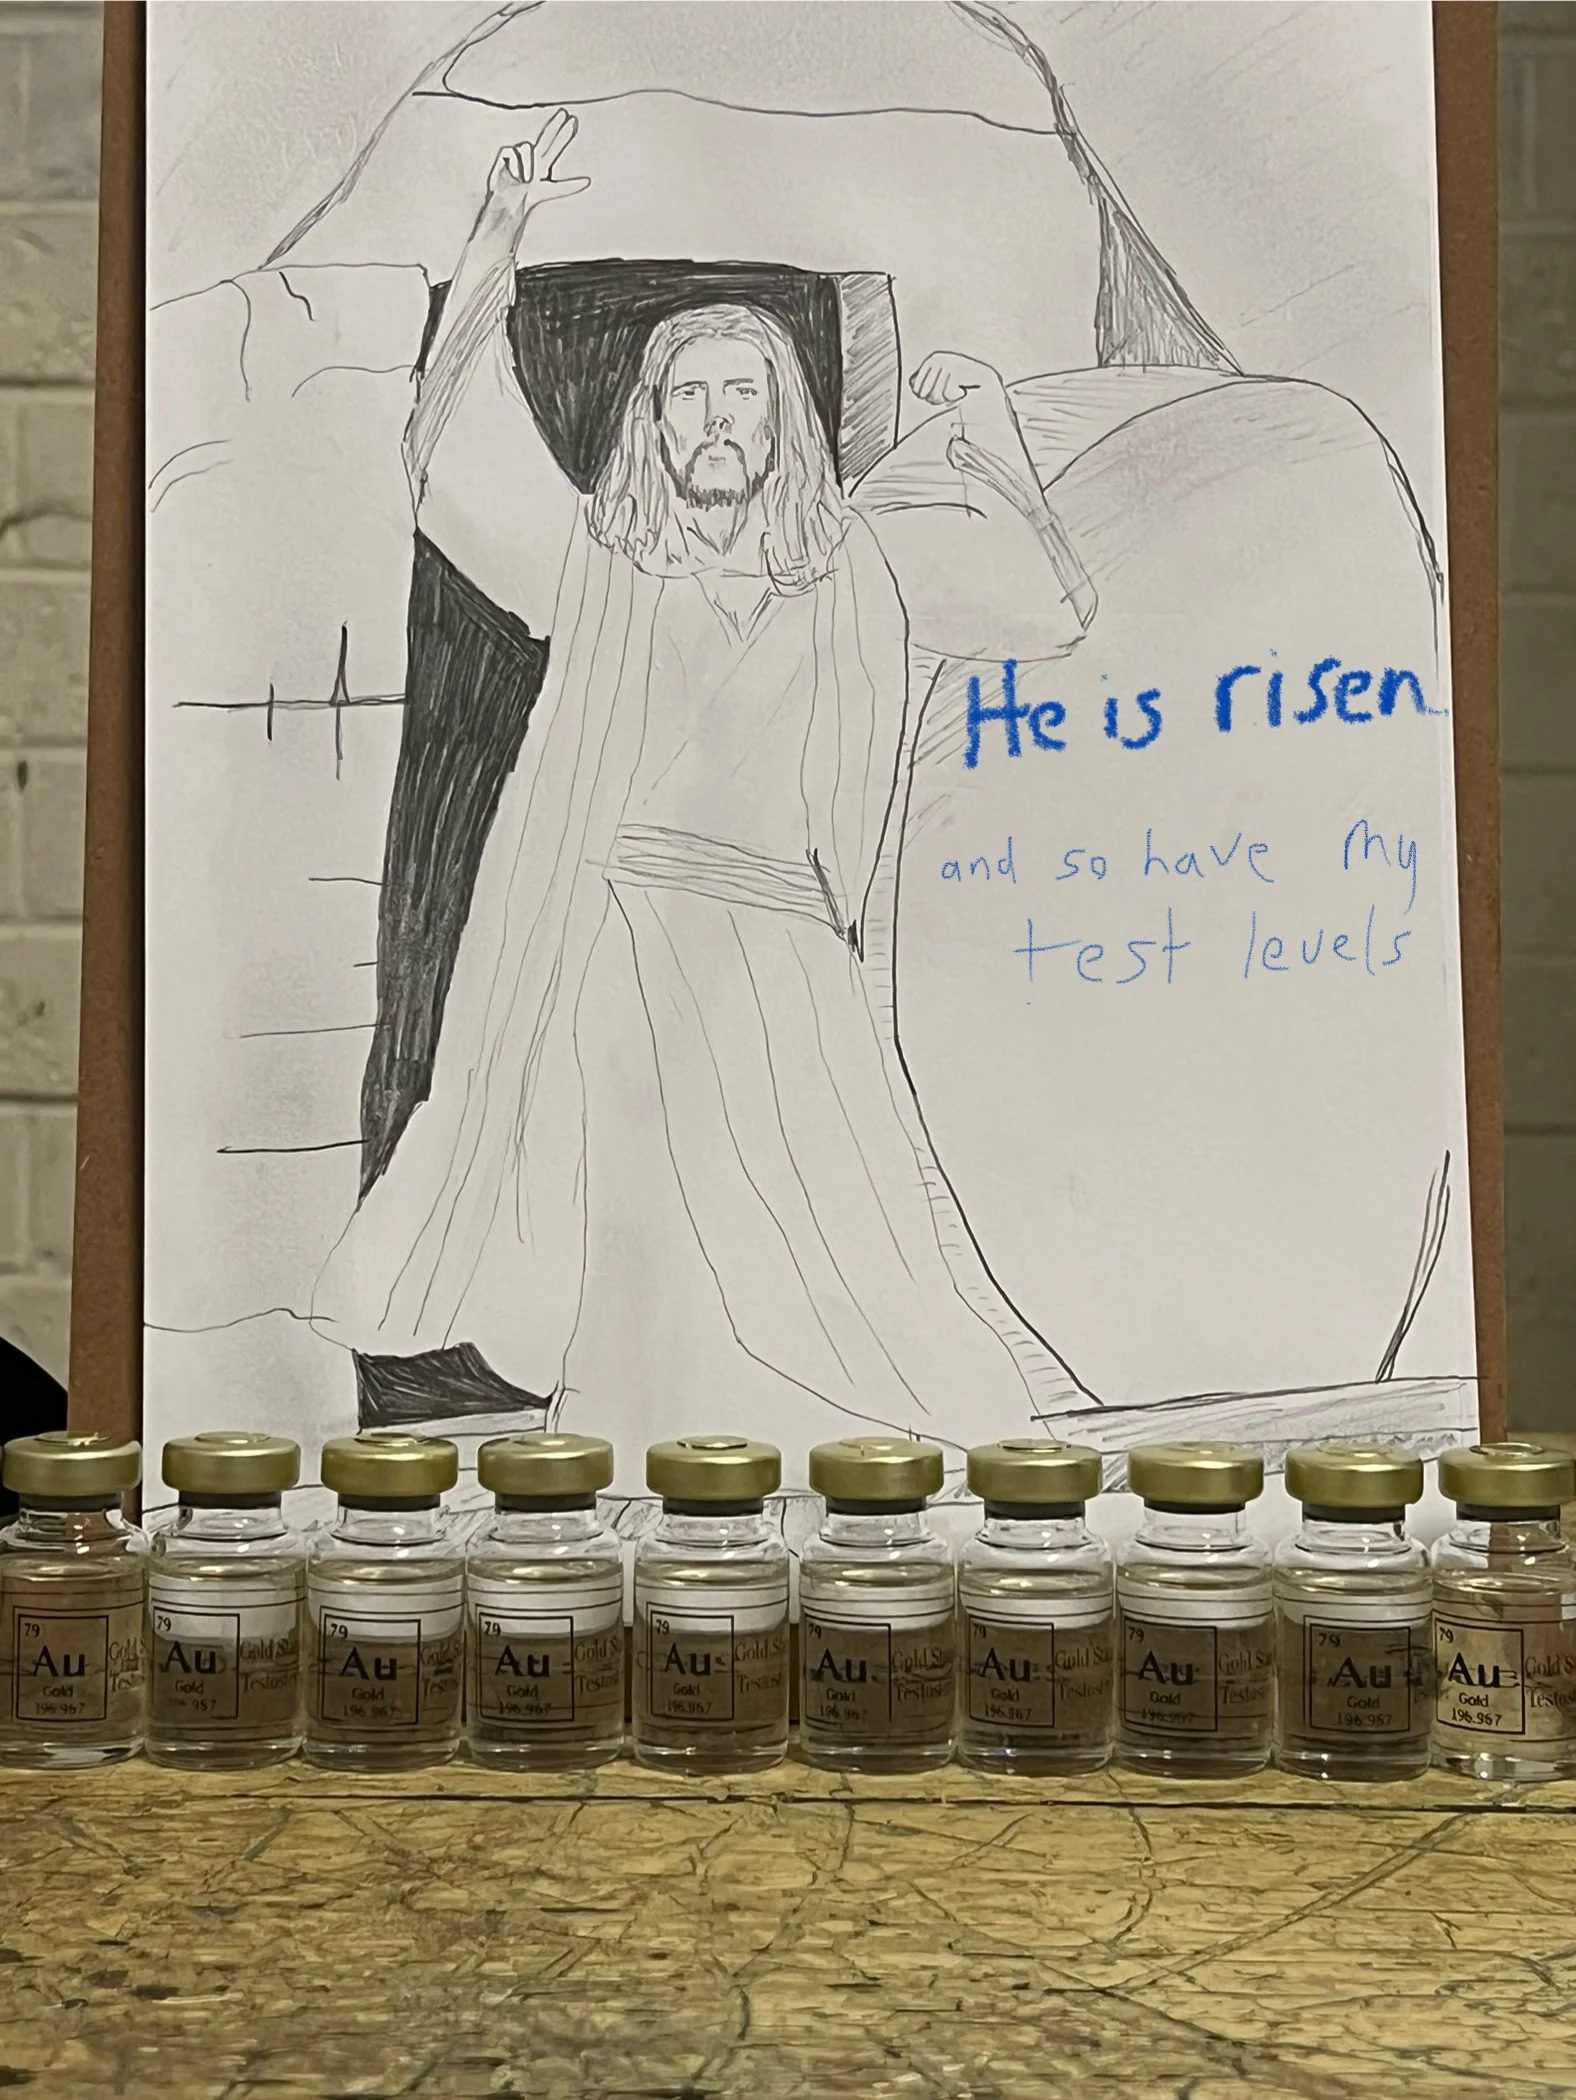 He is risen
and so have my
test levels
79
Au
Gold
196.967
Gold
79
Au
Gold
Gold
79
Au
Gold
196.967
Gold
79
Au
Gold
196.967
Gold
79
Au
Gold
196.967
Gold
79
Au
Gold
196.967
Gold
79
Au
Gold
196.967
Gold
79
Au
Gold
196.967
Gold
79
Au
Gold
196.967
79
Au
Gold
196.967
Gold